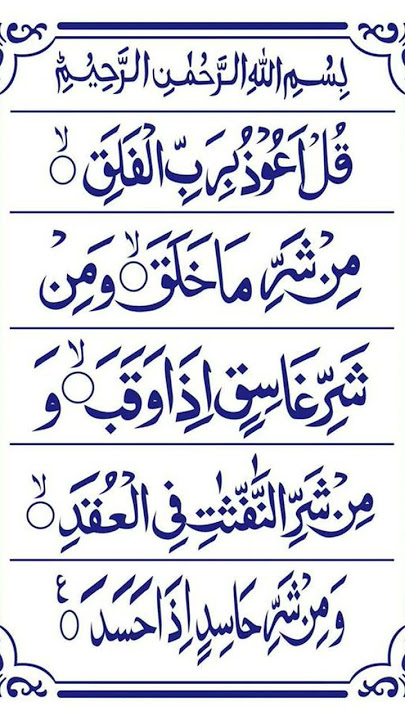 بِسْمِ اللهِ الرَّحْمٰنِ الرَّحِيْمِ
قُلْ اَعُوْذُ بِرَبِّ الْفَلَقِ ۙ○
مِنْ شَرِّ مَا خَلَقَ ۙ○ وَمِنْ
شَرِّ غَاسِقٍ اِذَا وَقَبَ ۙ○ وَ
مِنْ شَرِّ النَّفّٰثٰتِ فِی الْعُقَدِ ۙ○
وَمِنْ شَرِّ حَاسِدٍ اِذَا حَسَدَ ○ ع